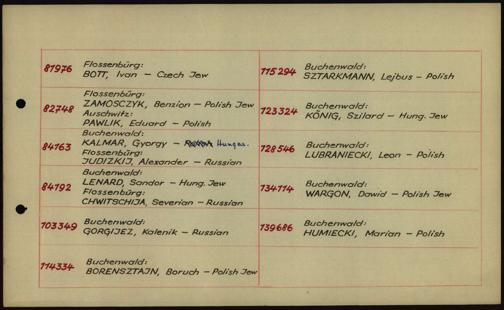 81976
Flossenbürg:
BOTT, Ivan – Czech Jew
82748
Flossenbürg:
ZAMOSCZYK, Benzion – Polish Jew
Auschwitz:
PAWLIK, Eduard – Polish
84163
Buchenwald:
KALMAR, Gyorgy – Hungar.
Flossenbürg:
JUDIZKIJ, Alexander – Russian
84192
Buchenwald:
LENARD, Sandor – Hung. Jew
Flossenbürg:
CHWITSCHIJA, Severian – Russian
103349
Buchenwald:
GORGIJEZ, Kalenik – Russian
114334
Buchenwald:
BORENSZTAJN, Boruch – Polish Jew
115294
Buchenwald:
SZTARKMANN, Lejbus – Polish
123324
Buchenwald:
KÖNIG, Szilard – Hung. Jew
128546
Buchenwald:
LUBRANIECKI, Leon – Polish
134114
Buchenwald:
WARGON, Dawid – Polish Jew
139686
Buchenwald:
HUMIECKI, Marian – Polish